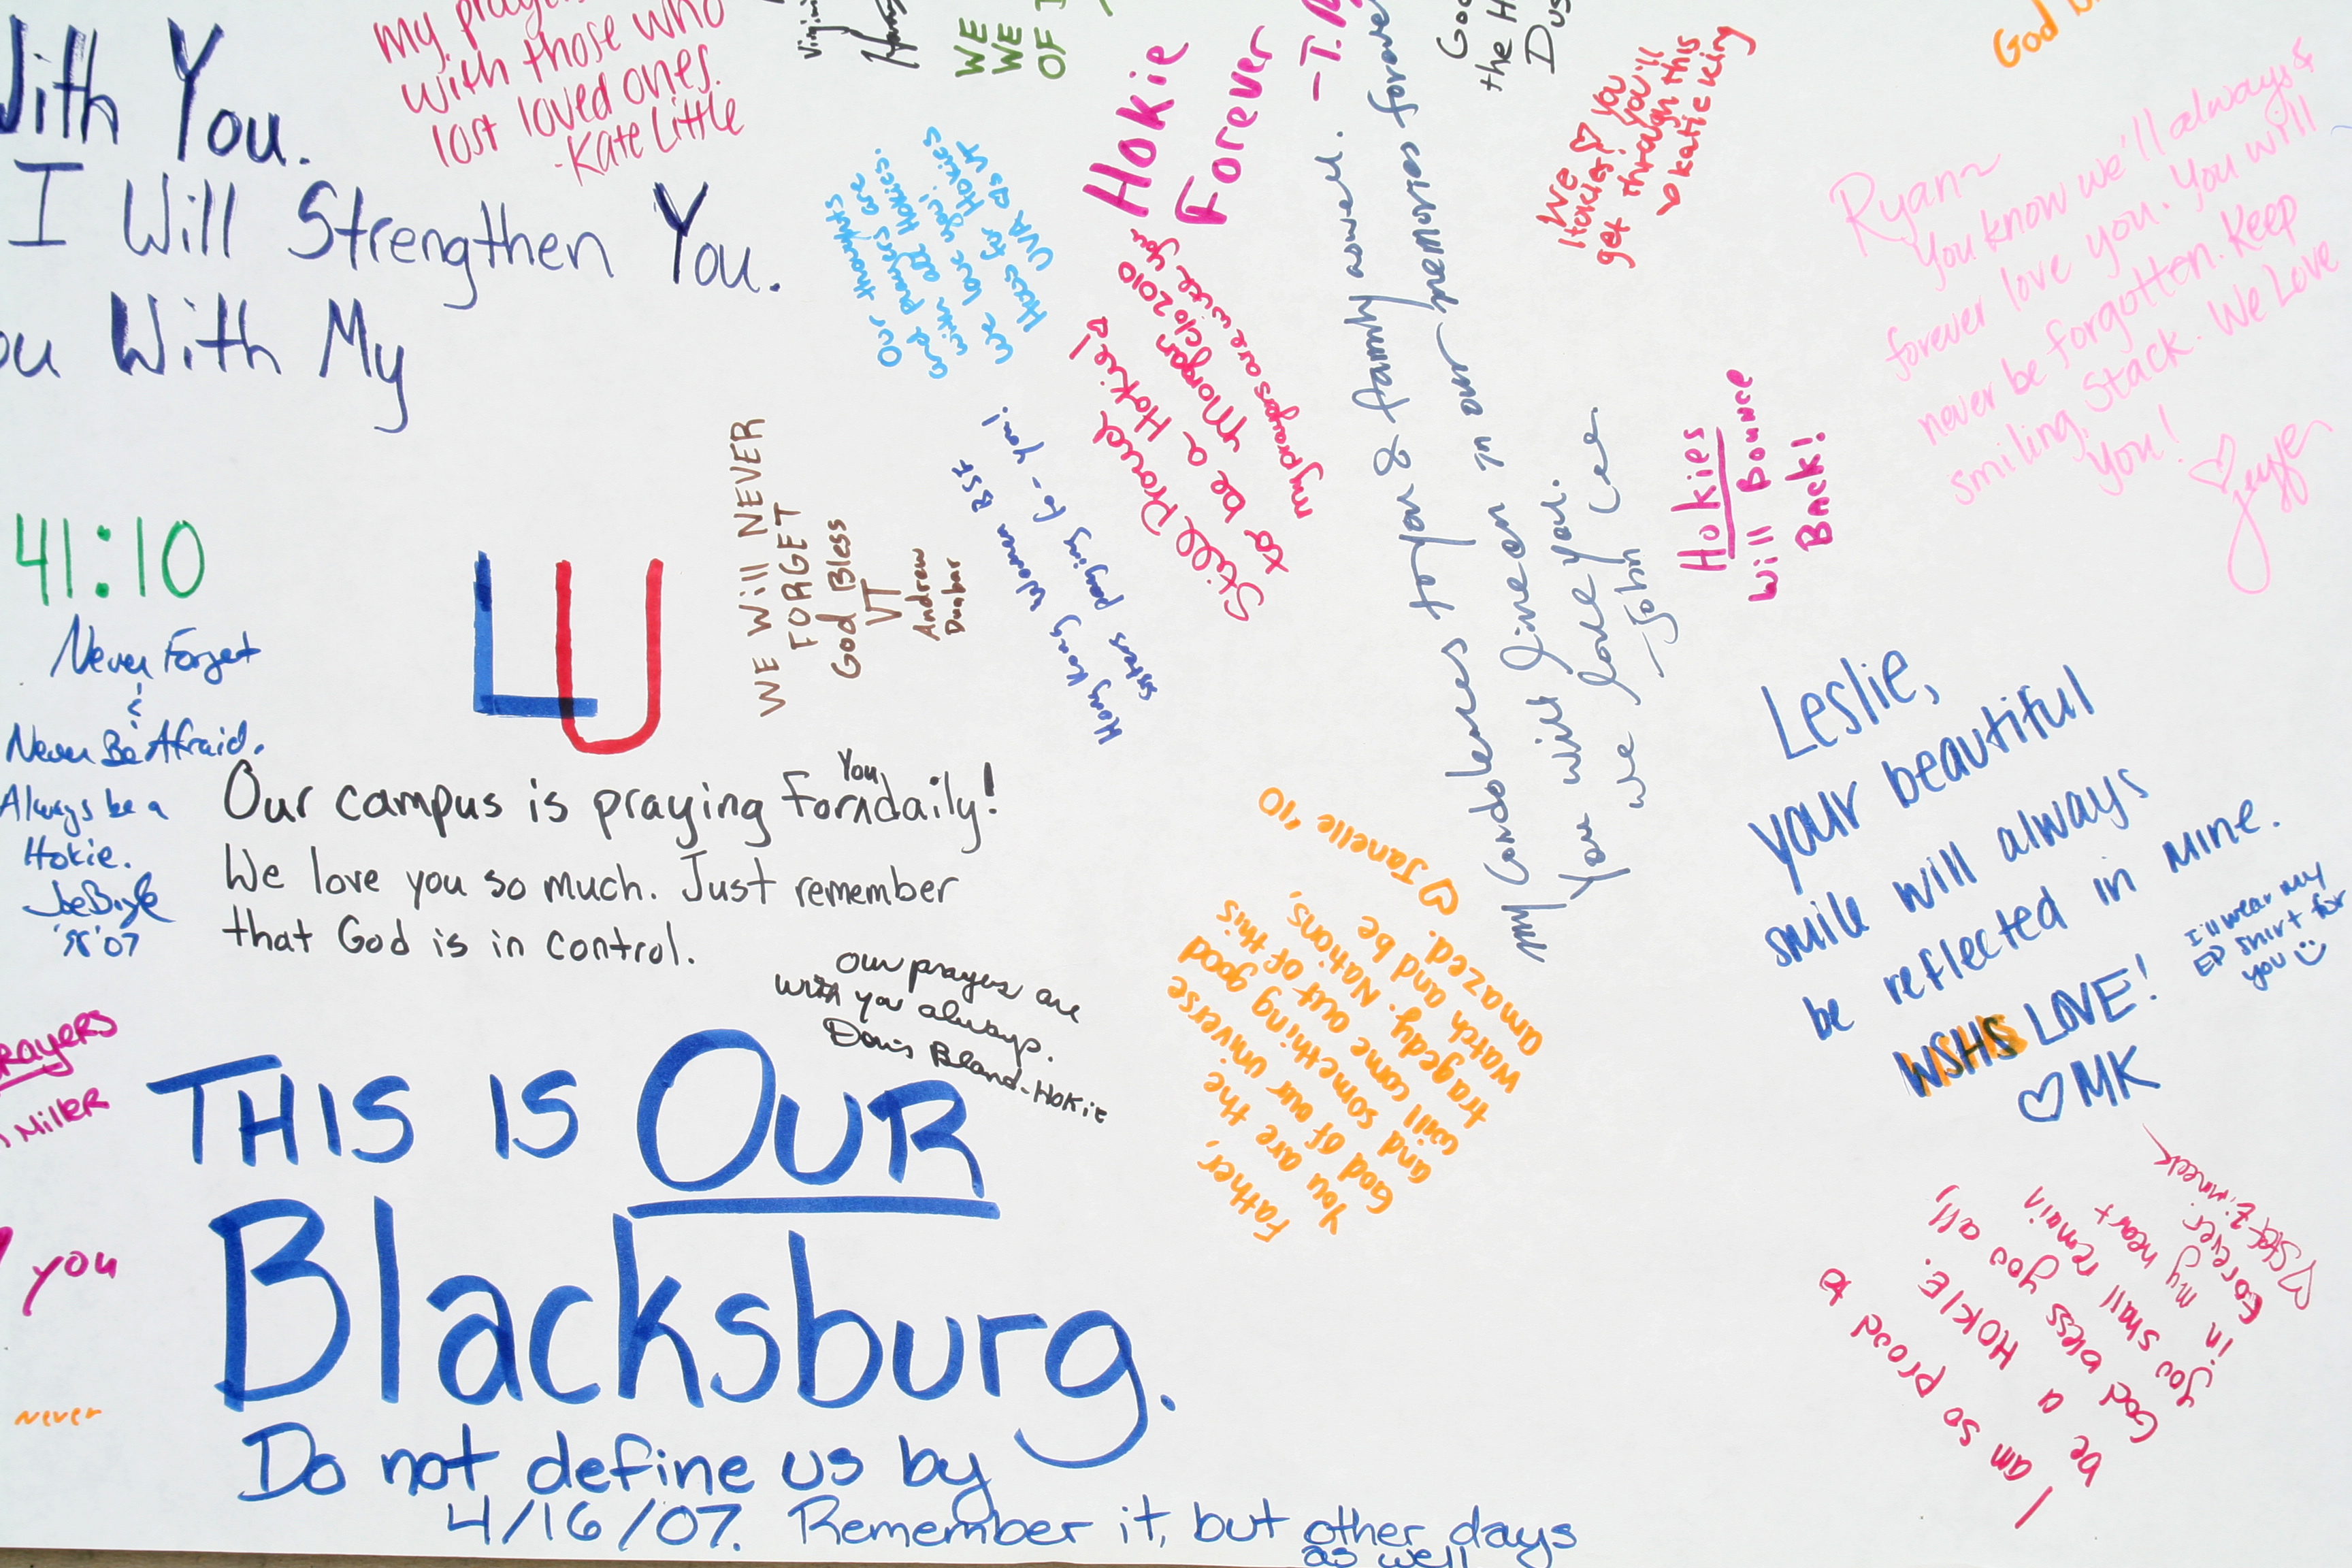 With You.
I Will Strengthen You.
You With My
my prayers
with those who
lost loved ones.
-Kate Little
WE
WE
OF
Hokie
Forever
-T.
the H
God
We ♡ you
Hokies! you'll
get through this
♡ Katie King
Ryan~
You know we'll always &
forever love you. You will
never be forgotten. Keep
smiling, Stack. We Love
You!
♡ Jayge
Our thoughts
and prayers are
with all Hokies.
we love you!
Hoos for Hokies
UVA
Still Proud Hokie! ♡
to be a
my prayers are with you
my Condolences to you & family aswell.
You will live on in our memories forever
we love you.
-John Lee
Hokies
Will Bounce
Back!
41:10
Never Forget
&
Never Be Afraid.
Always be a
Hokie.
'07
LU
Our campus is praying for you daily!
We love you so much. Just remember
that God is in control.
WE Will NEVER
FORGET
God Bless
VT
Andrew
Dunbar
Hong Kong Women BSF
sisters praying for you!
Our prayers are
with you always.
Doris Bland-Hokie
Leslie,
your beautiful
smile will always
be reflected in mine.
WSHS LOVE!
♡ MK
I'll wear my
EP shirt for
you
Father,
You are the
God of our universe
and something good
will come out of this
tragedy. Nations,
watch and be
amazed.
♡ Janelle '10
rayers
Miller
you
Never
THIS IS OUR
Blacksburg.
Do not define us by
4/16/07. Remember it, but other days
as well
I am so proud to
be a HOKIE.
God bless you all,
you shall remain
in my heart
forever.